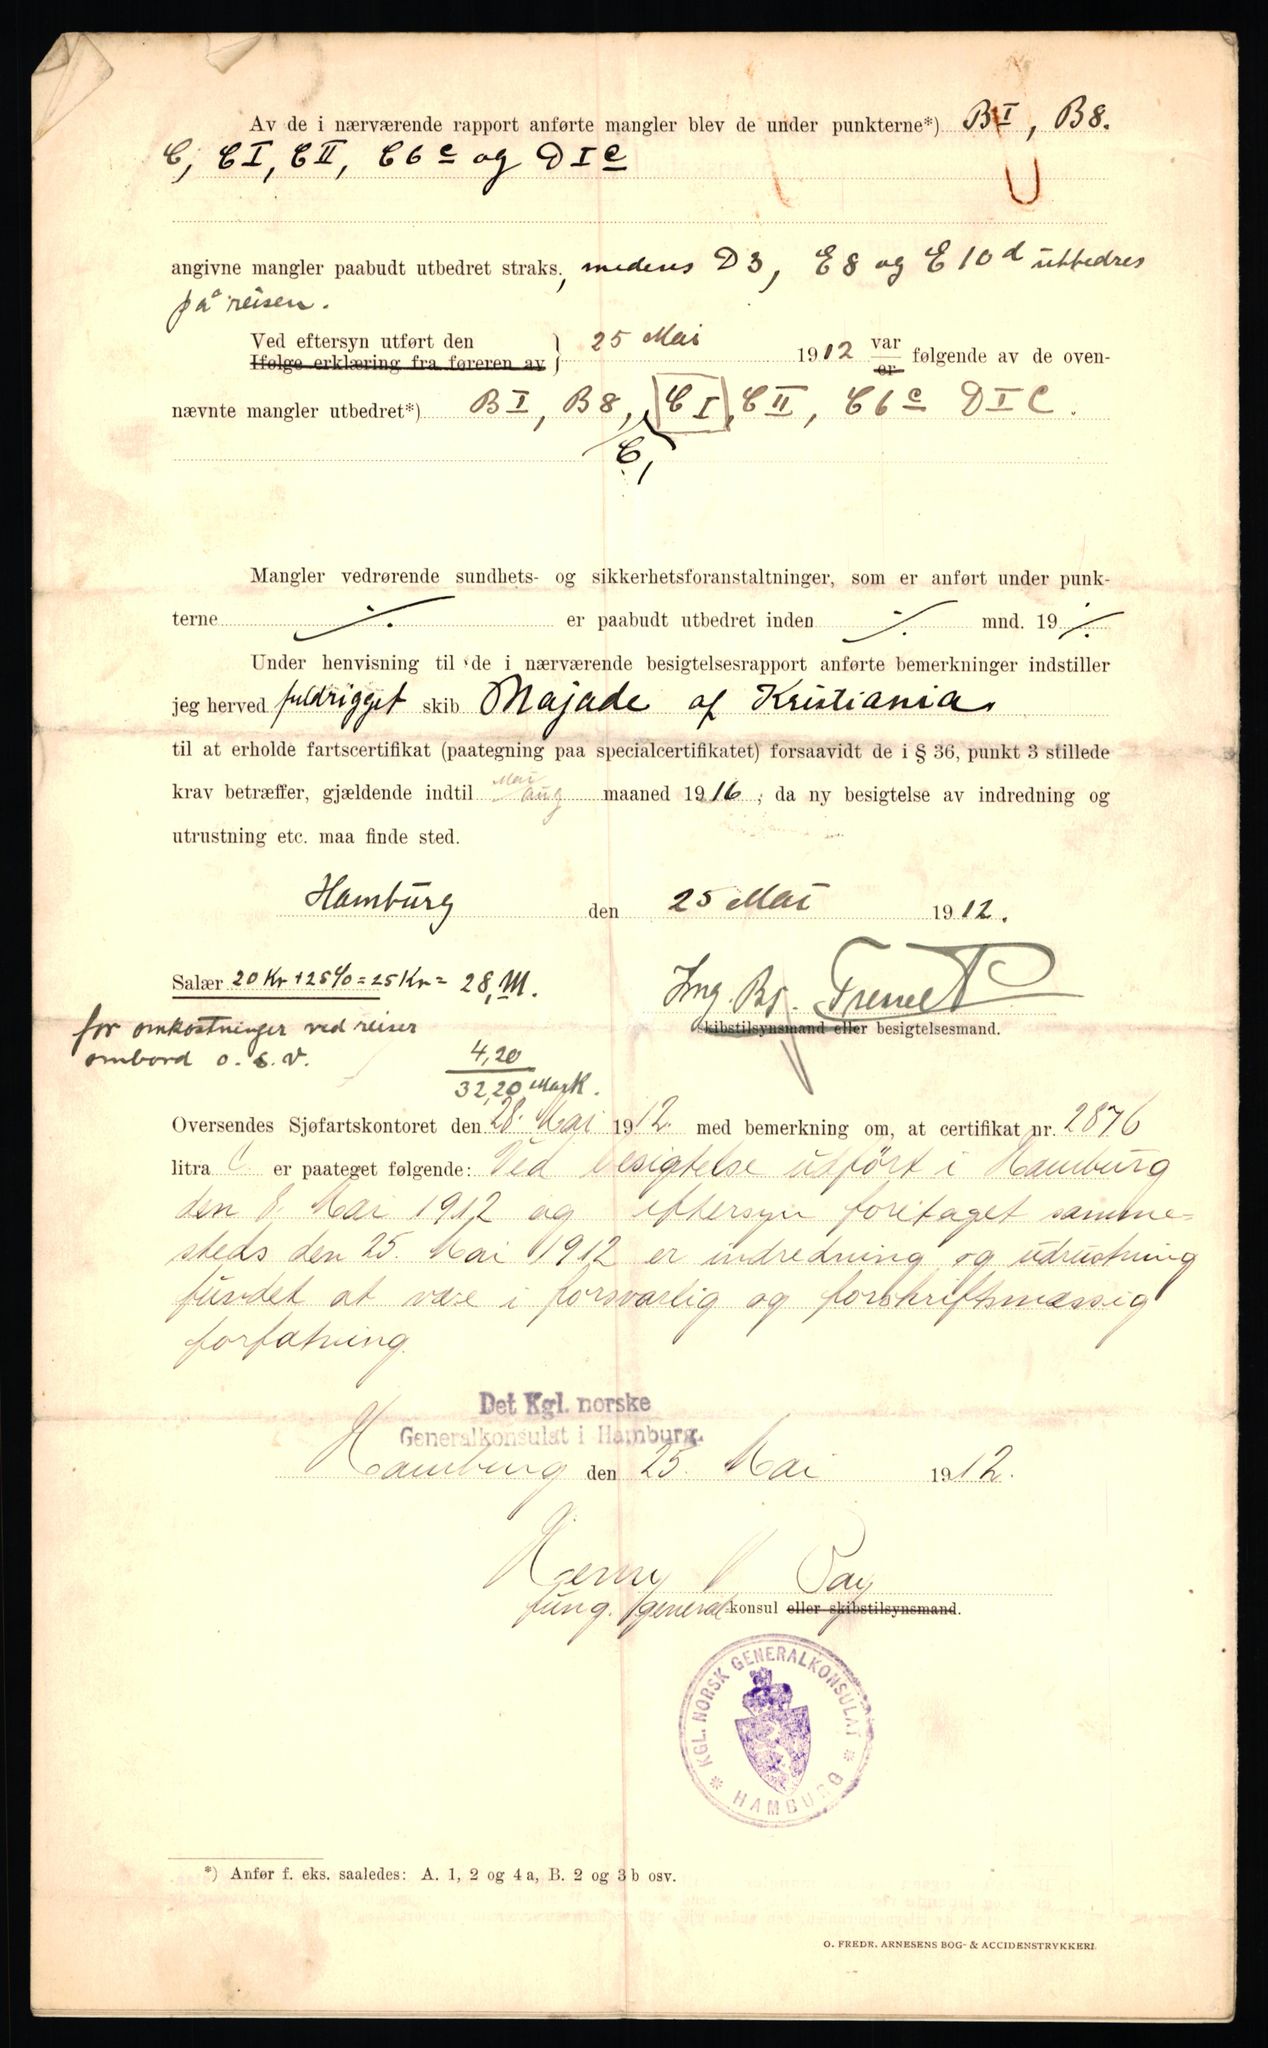 Av de i nærværende rapport anførte mangler blev de under punkterne*) BI, B8.
C, CI, CII, C6c og DIc
angivne mangler paabudt utbedret straks, medens D3, E8 og E10d utbedres
på reisen.
Ved eftersyn utført den
Ifølge erklæring fra føreren av } 25 Mai 1912 var/er følgende av de oven-
nævnte mangler utbedret*) BI, B8, CI, CII, C6c DIC.
C,
Mangler vedrørende sundhets- og sikkerhetsforanstaltninger, som er anført under punk-
terne ./. er paabudt utbedret inden ./. mnd. 19 ./.
Under henvisning til de i nærværende besigtelsesrapport anførte bemerkninger indstiller
jeg herved fuldrigget skib Majade af Kristiania
til at erholde fartscertifikat (paategning paa specialcertifikatet) forsaavidt de i § 36, punkt 3 stillede
Mai
krav betræffer, gjældende indtil aug maaned 1916, da ny besigtelse av indredning og
utrustning etc. maa finde sted.
Hamburg den 25 Mai 1912.
Salær 20 Kr + 25% = 25 Kr = 28, M.
Ing. Bj.
skibstilsynsmand eller besigtelsesmand.
for omkostninger ved reiser
ombord o.s.v. 4,20
32,20 Mark.
Oversendes Sjøfartskontoret den 28. Mai 1912. med bemerkning om, at certifikat nr. 2876
litra C er paateget følgende: Ved besigtelse udført i Hamburg
den 8. Mai 1912 og eftersyn foretaget samme=
steds den 25. Mai 1912 er indredning og udrustning
fundet at være i forsvarlig og forskriftsmæssig
forfatning.
Det Kgl. norske
Generalkonsulat i Hamburg.
Hamburg den 25. Mai 1912.
Henry Pay
fung. general konsul eller skibstilsynsmand.
KGL. NORSK GENERALKONSULAT
* HAMBURG *
*) Anfør f. eks. saaledes: A. 1, 2 og 4 a, B. 2 og 3 b osv.
O. FREDR. ARNESENS BOG- & ACCIDENSTRYKKERI